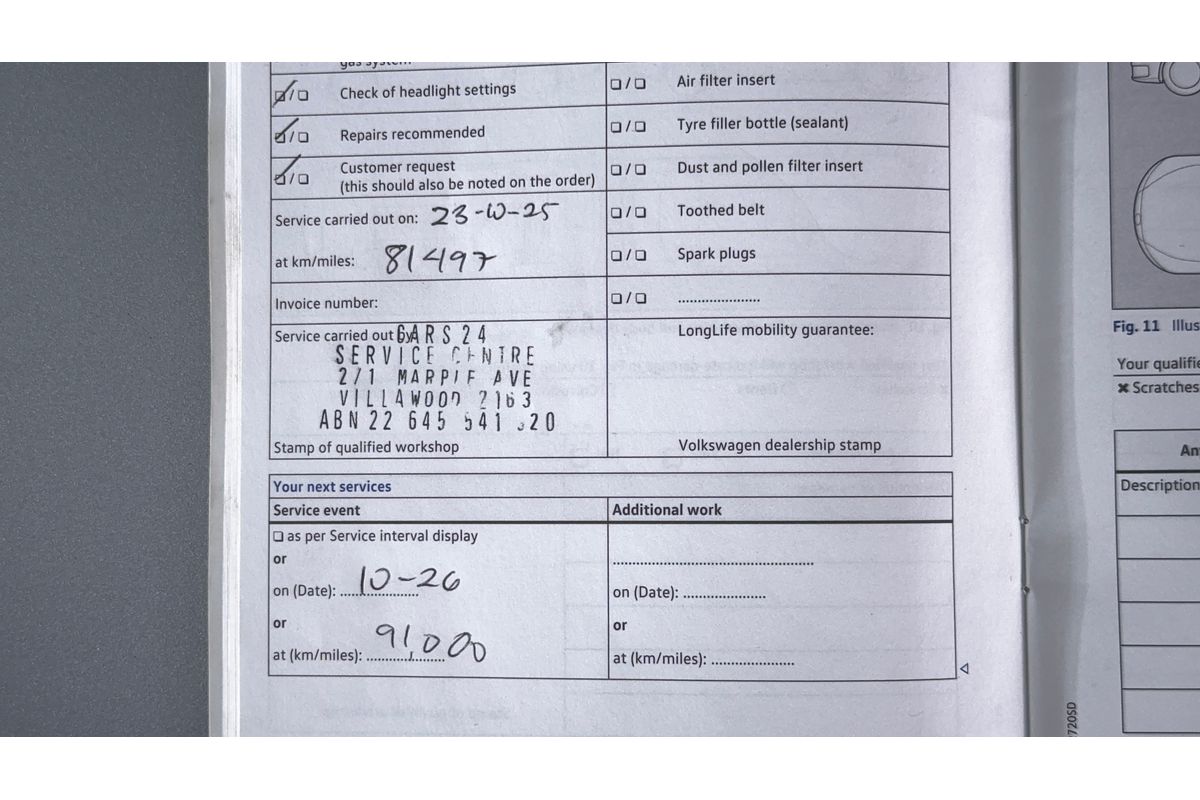 Check of headlight settings
Repairs recommended
Customer request
(this should also be noted on the order)
Service carried out on: 23-10-25
at km/miles: 81497
Invoice number:
Service carried out
CARS 24
SERVICE CENTRE
2/1
AVE
VILLAWOOD 2163
ABN 22 645 541
Stamp of qualified workshop
Air filter insert
Tyre filler bottle (sealant)
Dust and pollen filter insert
Toothed belt
Spark plugs
.....................
LongLife mobility guarantee:
Volkswagen dealership stamp
Your next services
Service event
as per Service interval display
or
on (Date): 10-26
or
at (km/miles): 91,000
Additional work
on (Date): .....................
or
at (km/miles): .....................
Fig. 11
Your
Scratches
Description